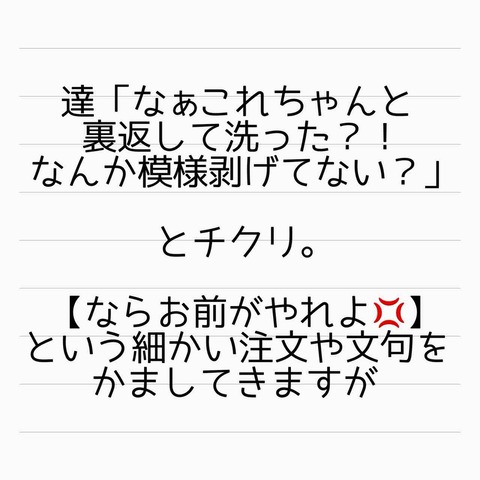 達「なぁこれちゃんと
裏返して洗った？！
なんか模様剥げてない？」
とチクリ。
【ならお前がやれよ💢】
という細かい注文や文句を
かましてきますが